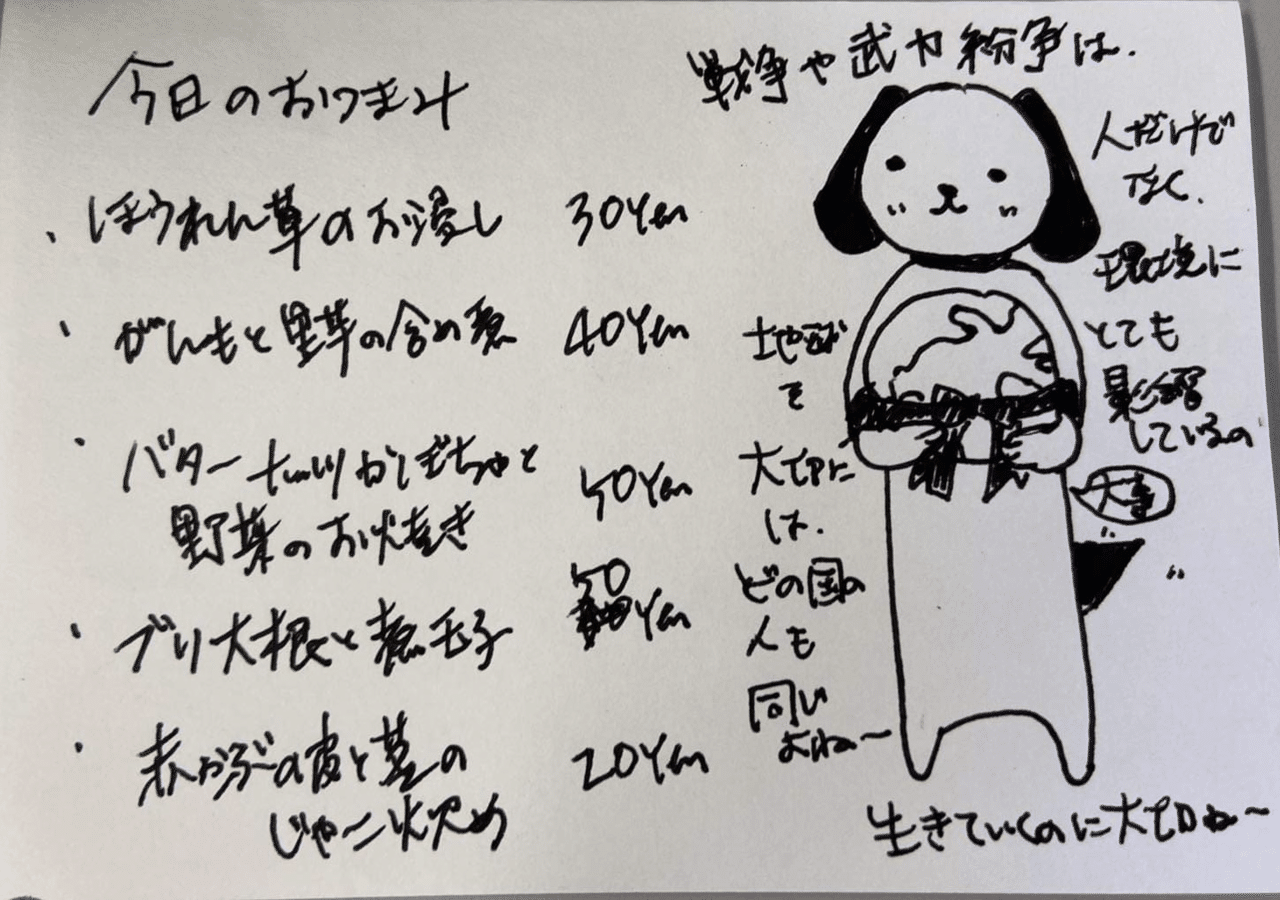 今日のおつまみ
、ほうれん草のお浸し 30Yen
、がんもと里芋の含め煮 40Yen
、バターナッツかぼちゃと
野菜のお焼き 50Yen
、ブリ大根と煮玉子 50Yen
、赤かぶの皮と茎の
じゃこ炒め 20Yen
戦争や武力紛争は、
人だけで
なく、
環境に
とても
影響
しているの
地球
を
大切に
は、
どの国の
人も
同じ
よね〜
大事
生きていくのに大切ね〜